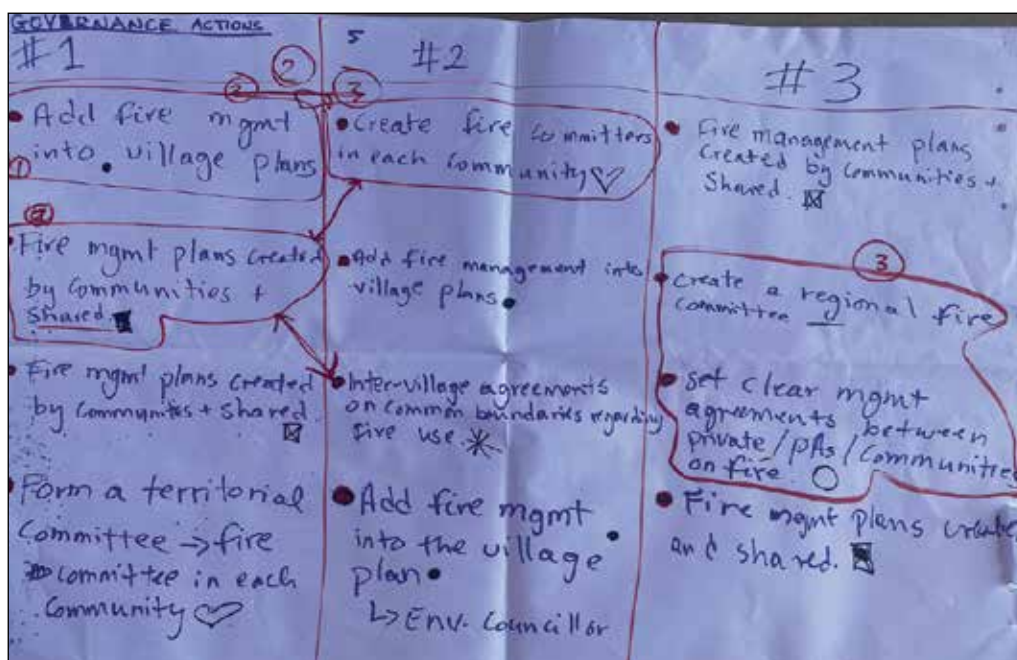 GOVERNANCE ACTIONS
#1
②
② ③
• Add fire mgmt
into village plans
①
②
• Fire mgmt plans created
by communities +
shared.
• Fire mgmt plans created
by communites + shared
• Form a territorial
Committee → fire
committee in each
Community ♡
5
#2
• Create fire committers
in each community ♡
• Add fire management into
village plans •
• Inter-village agreements
on common boundaries regarding
fire use. *
• Add fire mgmt
into the village
plan •
↳ Env. Councillor
#3
• Fire management plans
created by communities +
Shared. ☒
③
• create a regional fire
committee
• set clear mgmt
agreements between
private/PAs/Communities
on fire. ○
• Fire mgmt plans create
and shared.